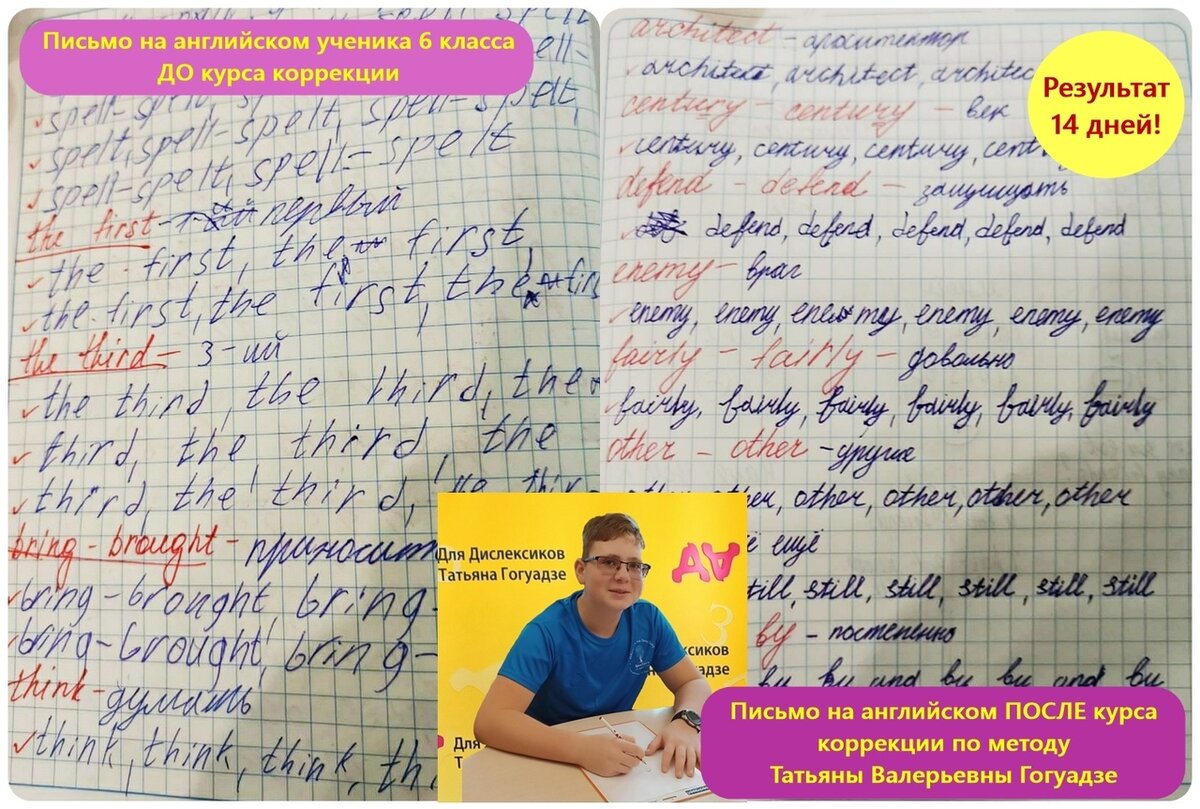 Письмо на английском ученика 6 класса
ДО курса коррекции
spell-spelt,
spelt, spell-spelt, spell-spelt,
spell-spelt, spell-spelt
the first - первый
the first, the first,
the first, the first, the firs
the third - 3-ий
the third, the third, the
third, the third, the
third, the third, the third
bring - brought - приносить
bring-brought, bring-
bring-brought, bring-
think - думать
think, think, think, thi
architect - архитектор
architect, architect, architec
Результат
14 дней!
century - century - век
century, century, century, cent
defend - defend - защищать
defend, defend, defend, defend, defend
enemy - враг
enemy, enemy, enemy, enemy, enemy, enemy
fairly - fairly - довольно
fairly, fairly, fairly, fairly, fairly, fairly
other - other - другие
other, other, other, other, other
ещё
still, still, still, still, still
by - постепенно
by, by and by, by and by
Для Дислексиков
Татьяна Гогуадзе
Для
Письмо на английском ПОСЛЕ курса
коррекции по методу
Татьяны Валерьевны Гогуадзе